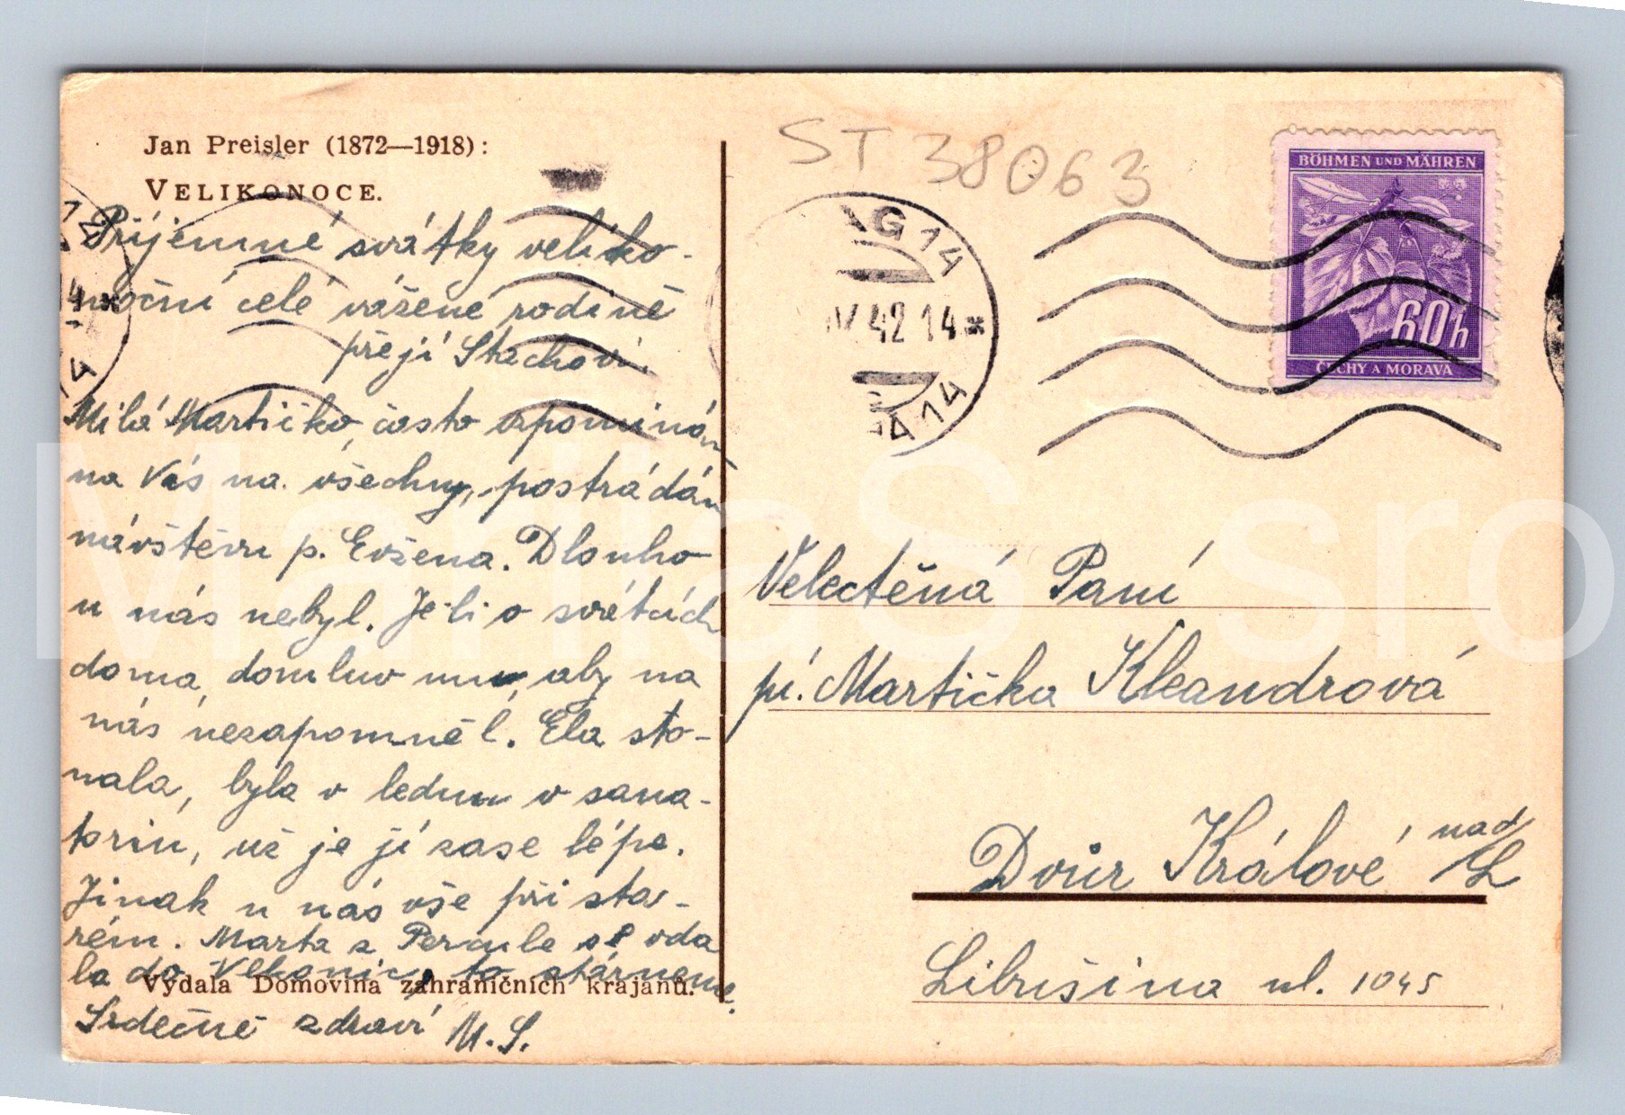 Jan Preisler (1872—1918):
VELIKONOCE.
Příjemné svátky veliko-
noční celé vážené rodině
přejí Stachovi.
Milá Martičko, často vzpomínám
na Vás na všechny, postrádám
návštěvu p. Evžena. Dlouho
u nás nebyl. Je-li o svátcích
doma, domluv mu, aby na
nás nezapomněl. Ela sto-
nala, byla v lednu v sana-
toriu, už je jí zase lépe.
Jinak u nás vše při sta-
rém. Marta z se vda
la do to stárneme.
Vydala Domovina zahraničních krajanů.
Srdečně zdraví M.S.
ST 38063
AG 14
IV 42 14 *
A 14
BÖHMEN UND MÄHREN
60h
ČECHY A MORAVA
Velectěná Paní
pí. Martička Kleandrová
Dvůr Králové nad/L
Libušina ul. 1045
MaHaS sro